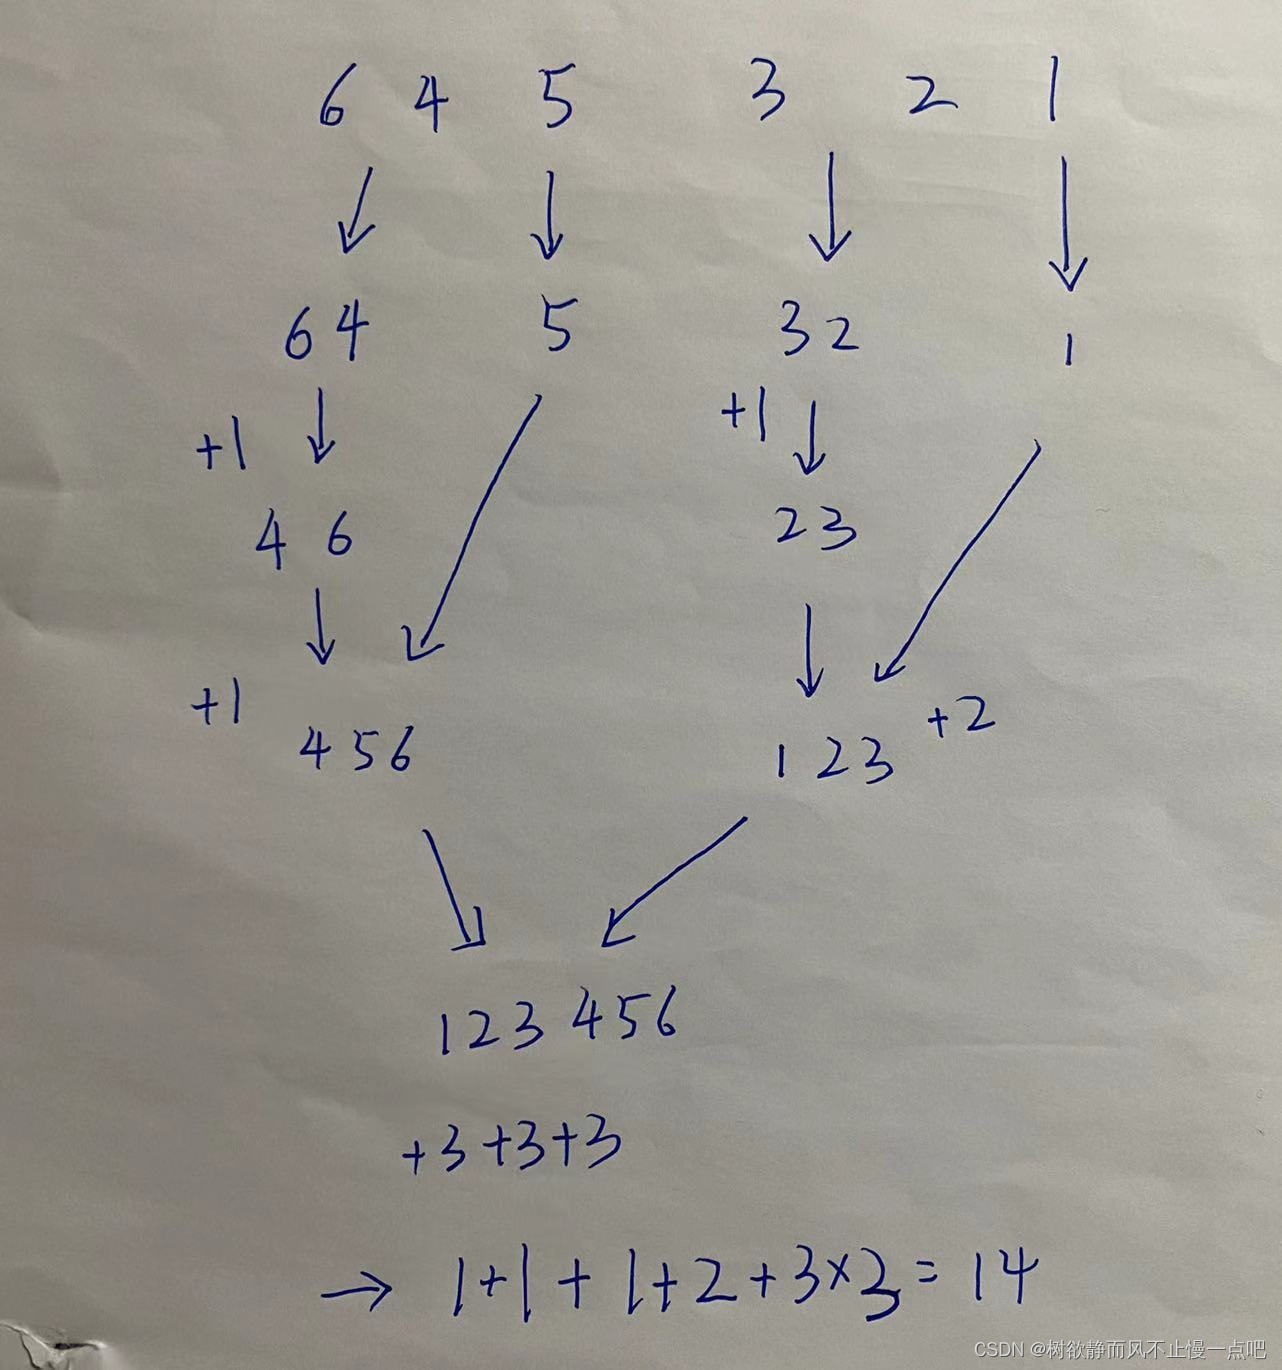 6 4 5 3 2 1
64 5 32 1
+1 +1
4 6 23
+1 +2
456 123
123 456
+3+3+3
→ 1+1+1+2+3×3=14
CSDN @树欲静而风不止慢一点吧